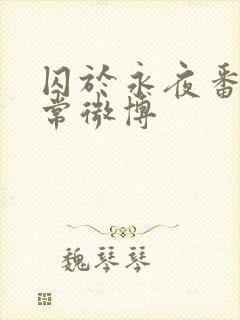 囚於永夜番
常微博
魏琴琴